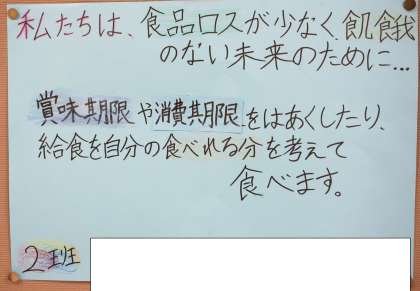 私たちは、食品ロスが少なく、飢餓
のない未来のために…
賞味期限や消費期限をはあくしたり、
給食を自分の食べれる分を考えて
食べます。
2班